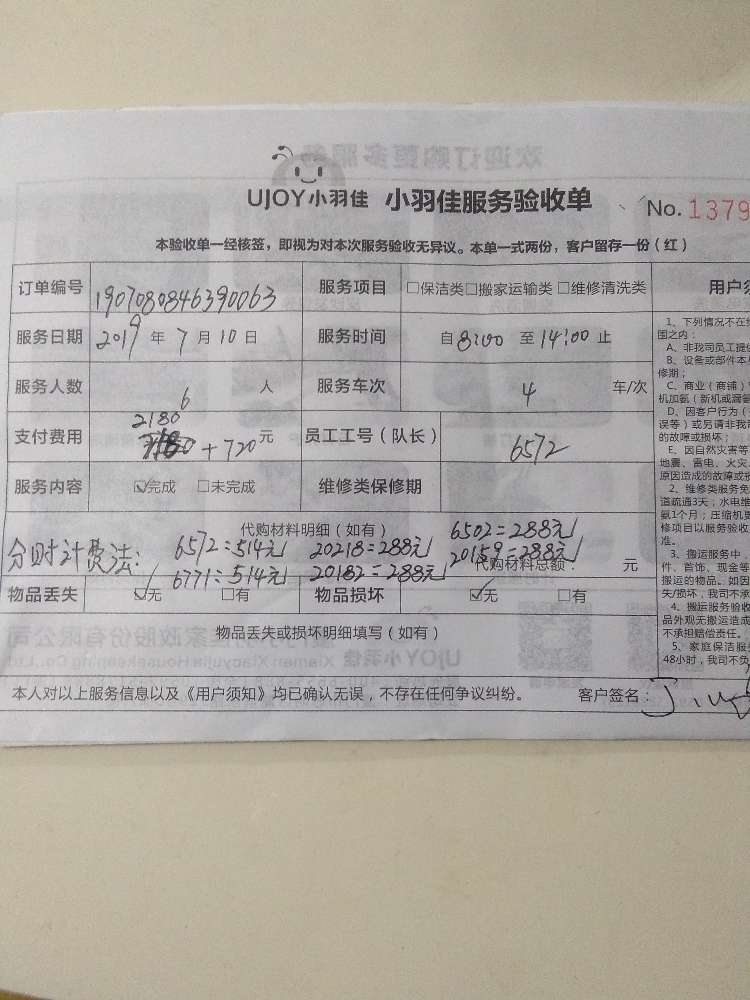 UJOY小羽佳 小羽佳服务验收单 No. 1379
本验收单一经核签，即视为对本次服务验收无异议。本单一式两份，客户留存一份（红）
订单编号 1907080846390063 服务项目 □保洁类□搬家运输类 □维修清洗类
服务日期 2019 年 7 月 10 日 服务时间 自 8:00 至 14:00 止
服务人数 6 人 服务车次 4 车/次
支付费用 2180 + 720 元 员工工号（队长） 6572
服务内容 ☑完成 □未完成 维修类保修期
代购材料明细（如有）
分时计费法: 6572=514元 20218=288元 6502=288元
6771=514元 20182=288元 20159=288元
代购材料总额： 元
物品丢失 ☑无 □有 物品损坏 ☑无 □有
物品丢失或损坏明细填写（如有）
本人对以上服务信息以及《用户须知》均已确认无误，不存在任何争议纠纷。 客户签名：
用户须
1、下列情况不在
围之内：
A、非我司员工提
B、设备或部件本
修期；
C、商业（商铺）
机加氨（新机或漏氨
D、因客户行为（
误等）或另请非我
的故障或损坏；
E、因自然灾害等
地震、雷电、火灾、
原因造成的故障或
2、维修类服务免
道疏通3天；水电维
氨1个月；压缩机更
修项目以服务验收
准。
3、搬运服务中，
件、首饰、现金等
搬运的物品。如因
失/损坏，我司不承
4、搬运服务验收
品外观无搬运造成
不承担赔偿责任。
5、家庭保洁服
48小时，我司不负